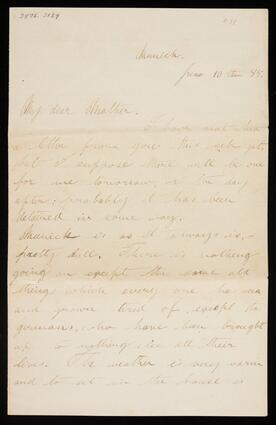 Munich.
June 10th 85.
My dear Mother.
I have not had
a letter from you this week yet,
but I suppose there will be one
for me tomorrow, or the day
after; probably it has been
detained in some way.
Munich is as it always is,
pretty dull. There is nothing
going on except the same old
things which every one has seen
and grown tired of except the
germans, who have been brought
up to nothing else all their
lives. The weather is very warm
and to sit in the house is